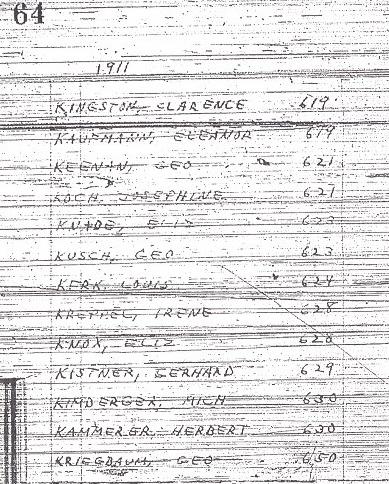 64
1911
KINGSTON, CLARENCE 619
KAUFMANN, ELEANOR 619
KEENAN, GEO 621
KOCH, JOSEPHINE 621
KNADE, ELIS 623
KUSCH, GEO 623
KERK, LOUIS 624
KREPPEL, IRENE 628
KNOX, ELIZ 628
KISTNER, GERHARD 629
KIMBERGER, MICH 630
KAMMERER, HERBERT 630
KRIEGBAUM, GEO 650